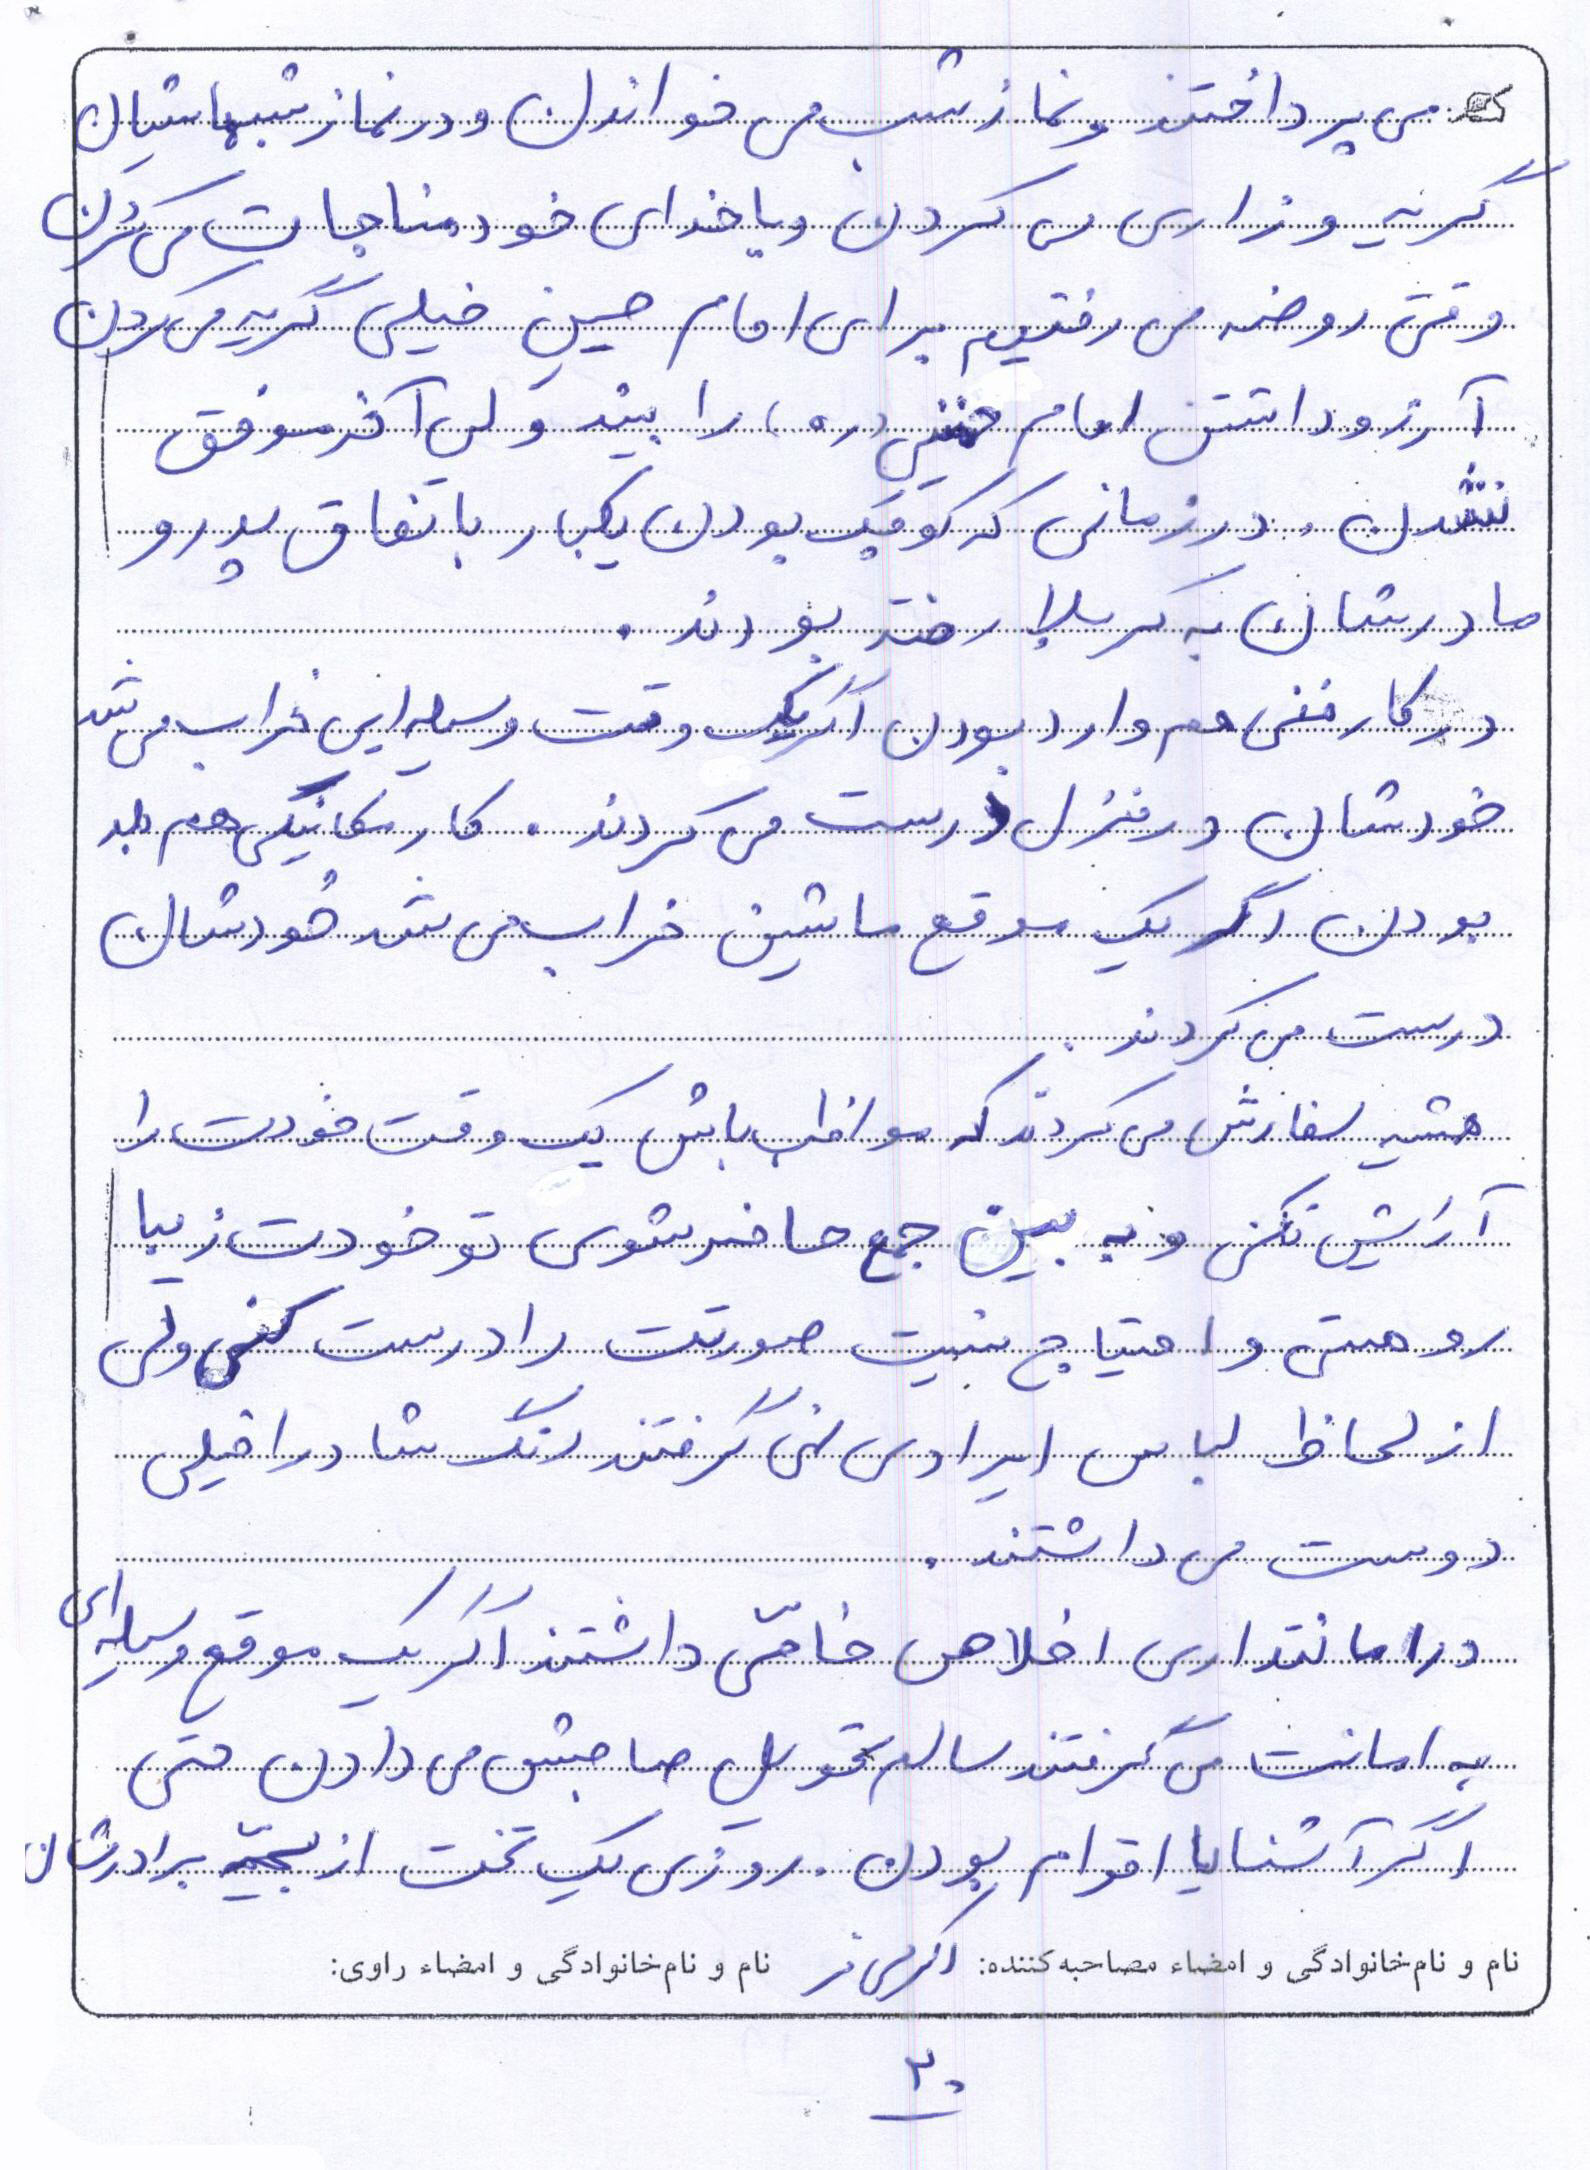 می پرداختند و نماز شب می خواندن و در نماز شبهاشان
گریه و زاری می کردن و با خدای خود مناجات می کردن
وقتی روضه می رفتیم برای امام حسین خیلی گریه می کردن
آرزو داشتن امام خمینی (ره) را ببیند ولی آخر موفق
نشدن . در زمانی که کوچک بودن یکبار با تفاق پدر و
مادرشان به کربلا رفته بودند .
در کار فنی هم وارد بودن اگر یک وقت وسیله ایی خراب می شد
خودشان در منزل درست می کردند . کار مکانیکی هم بلد
بودن اگر یک موقع ماشین خراب می شد خودشان
درست می کردند .
همشیه سفارش می کردند که مواظب باش یک وقت خودت را
آرایش نکنی و به بین جمع حاضر شوی تو خودت زیبا
رو هستی و احتیاج نیست صورتت را درست کنی ولی
از لحاظ لباس ایرادی نمی گرفتند رنگ شاد را خیلی
دوست می داشتند .
در امانتداری اخلاص خاصّی داشتند اگر یک موقع وسیله ای
به امانت می گرفتند سالم تحویل صاحبش می دادن حتی
اگر آشنا یا اقوام بودن . روزی یک تخت از بچّه برادرشان
نام و نام‌خانوادگی و امضاء مصاحبه‌کننده: نام و نام‌خانوادگی و امضاء راوی:
۲۰